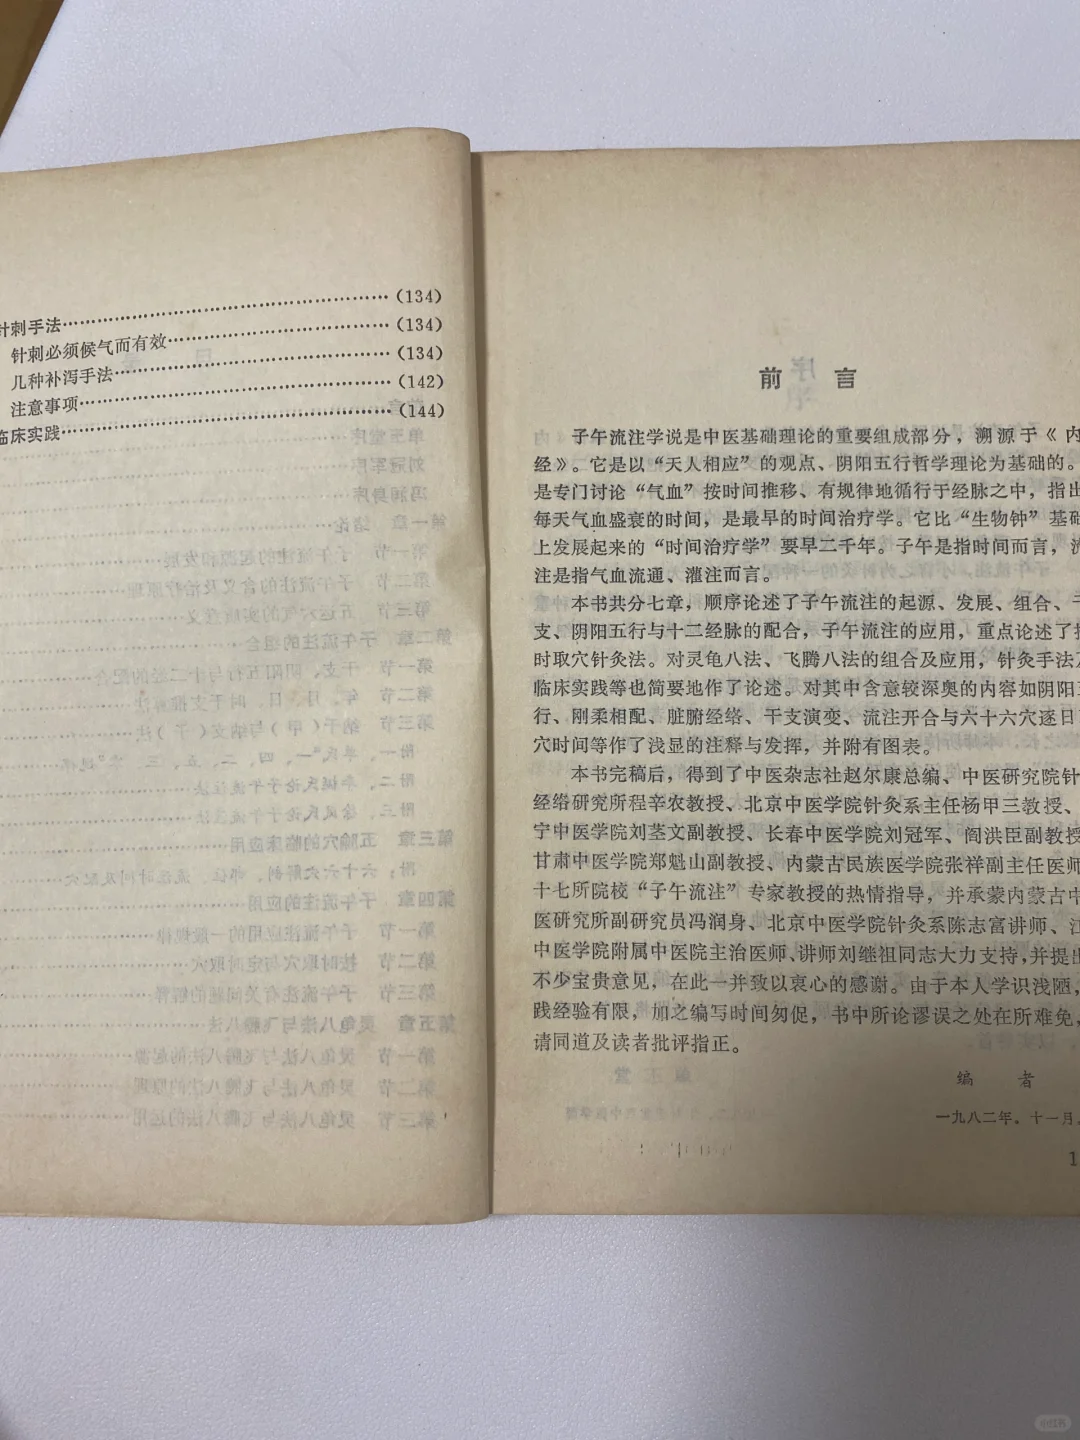 针刺手法……(134)
针刺必须候气而有效……(134)
几种补泻手法……(134)
注意事项……(142)
临床实践……(144)
前言
子午流注学说是中医基础理论的重要组成部分，溯源于《内
经》。它是以“天人相应”的观点、阴阳五行哲学理论为基础的。
是专门讨论“气血”按时间推移、有规律地循行于经脉之中，指出
每天气血盛衰的时间，是最早的时间治疗学。它比“生物钟”基础
上发展起来的“时间治疗学”要早二千年。子午是指时间而言，流
注是指气血流通、灌注而言。
本书共分七章，顺序论述了子午流注的起源、发展、组合、干
支、阴阳五行与十二经脉的配合，子午流注的应用，重点论述了按
时取穴针灸法。对灵龟八法、飞腾八法的组合及应用，针灸手法及
临床实践等也简要地作了论述。对其中含意较深奥的内容如阴阳五
行、刚柔相配、脏腑经络、干支演变、流注开合与六十六穴逐日
穴时间等作了浅显的注释与发挥，并附有图表。
本书完稿后，得到了中医杂志社赵尔康总编、中医研究院针
经络研究所程莘农教授、北京中医学院针灸系主任杨甲三教授、
宁中医学院刘茎文副教授、长春中医学院刘冠军、阎洪臣副教授
甘肃中医学院郑魁山副教授、内蒙古民族医学院张祥副主任医师
十七所院校“子午流注”专家教授的热情指导，并承蒙内蒙古中
医研究所副研究员冯润身、北京中医学院针灸系陈志富讲师、江
中医学院附属中医院主治医师、讲师刘继祖同志大力支持，并提出
不少宝贵意见，在此一并致以衷心的感谢。由于本人学识浅陋，
践经验有限，加之编写时间匆促，书中所论谬误之处在所难免，
请同道及读者批评指正。
编者
一九八二年．十一月．
1